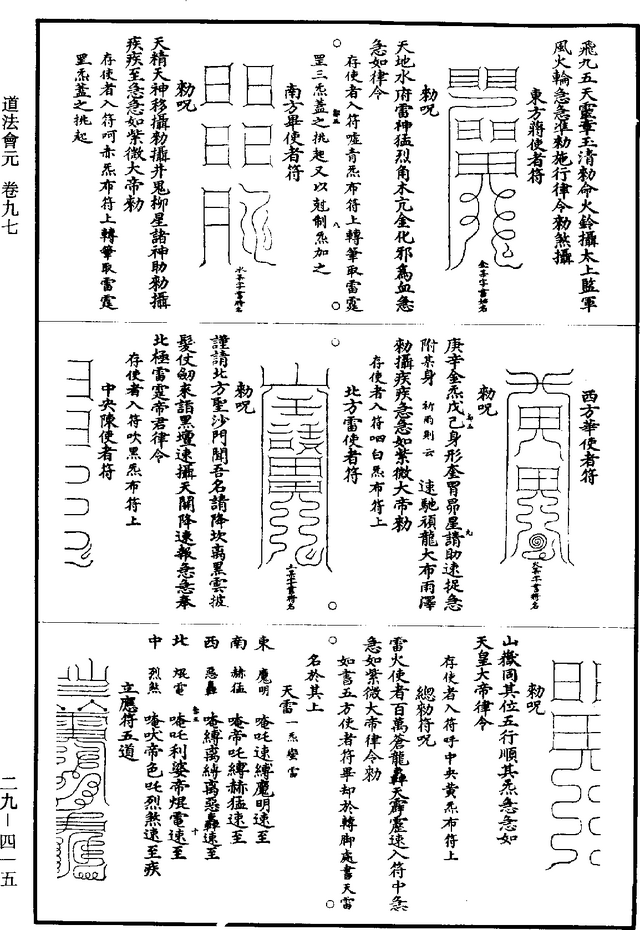 道法會元　卷九七
飛九五天靈章玉清勑命火鈴攝太上監軍
風火輪急急準勑施行律令勑煞攝
東方蔣使者符
勑呪
天地水府雷神猛烈角木亢金化邪為血急
急如律令
存使者入符噓青炁布符上轉筆取雷霆
罡三炁蓋之挑起又以尅制炁加之
南方畢使者符
勑呪
天精天神移攝勑攝井鬼柳星諸神助勑攝
疾疾至急急如紫微大帝勑
存使者入符呵赤炁布符上轉筆取雷霆
罡炁蓋之挑起
西方華使者符
勑呪
庚辛金炁戊己身形奎胃昴星請助速捉急
附某身　祈雨則云　速馳頑龍大布雨澤
勑攝疾疾急急如紫微大帝勑
存使者入符呬白炁布符上
北方雷使者符
勑呪
謹請北方聖沙門聞吾名請降坎离黑雲披
髮仗劒來詣黑壇速攝天關降速報急急奉
北極雷霆帝君律令
存使者入符吹黑炁布符上
中央陳使者符
勑呪
山嶽同其位五行順其炁急急如
天皇大帝律令
存使者入符呼中央黃炁布符上
總勑符呪
雷火使者百萬蒼龍轟天霹靂速入符中急
急如紫微大帝律令勑
如書五方使者符畢却於轉脚處書天雷
名於其上
天雷一炁變雷
東　魔明　唵吒速縛魔明速至
南　赫猛　唵帝吒縛赫猛速至
西　惡轟　唵縛离縛离惡轟速至
北　焜電　唵吒利婆帝焜電速至
中　烈煞　唵吠帝色吒烈煞速至疾
立應符五道
二九—四一五